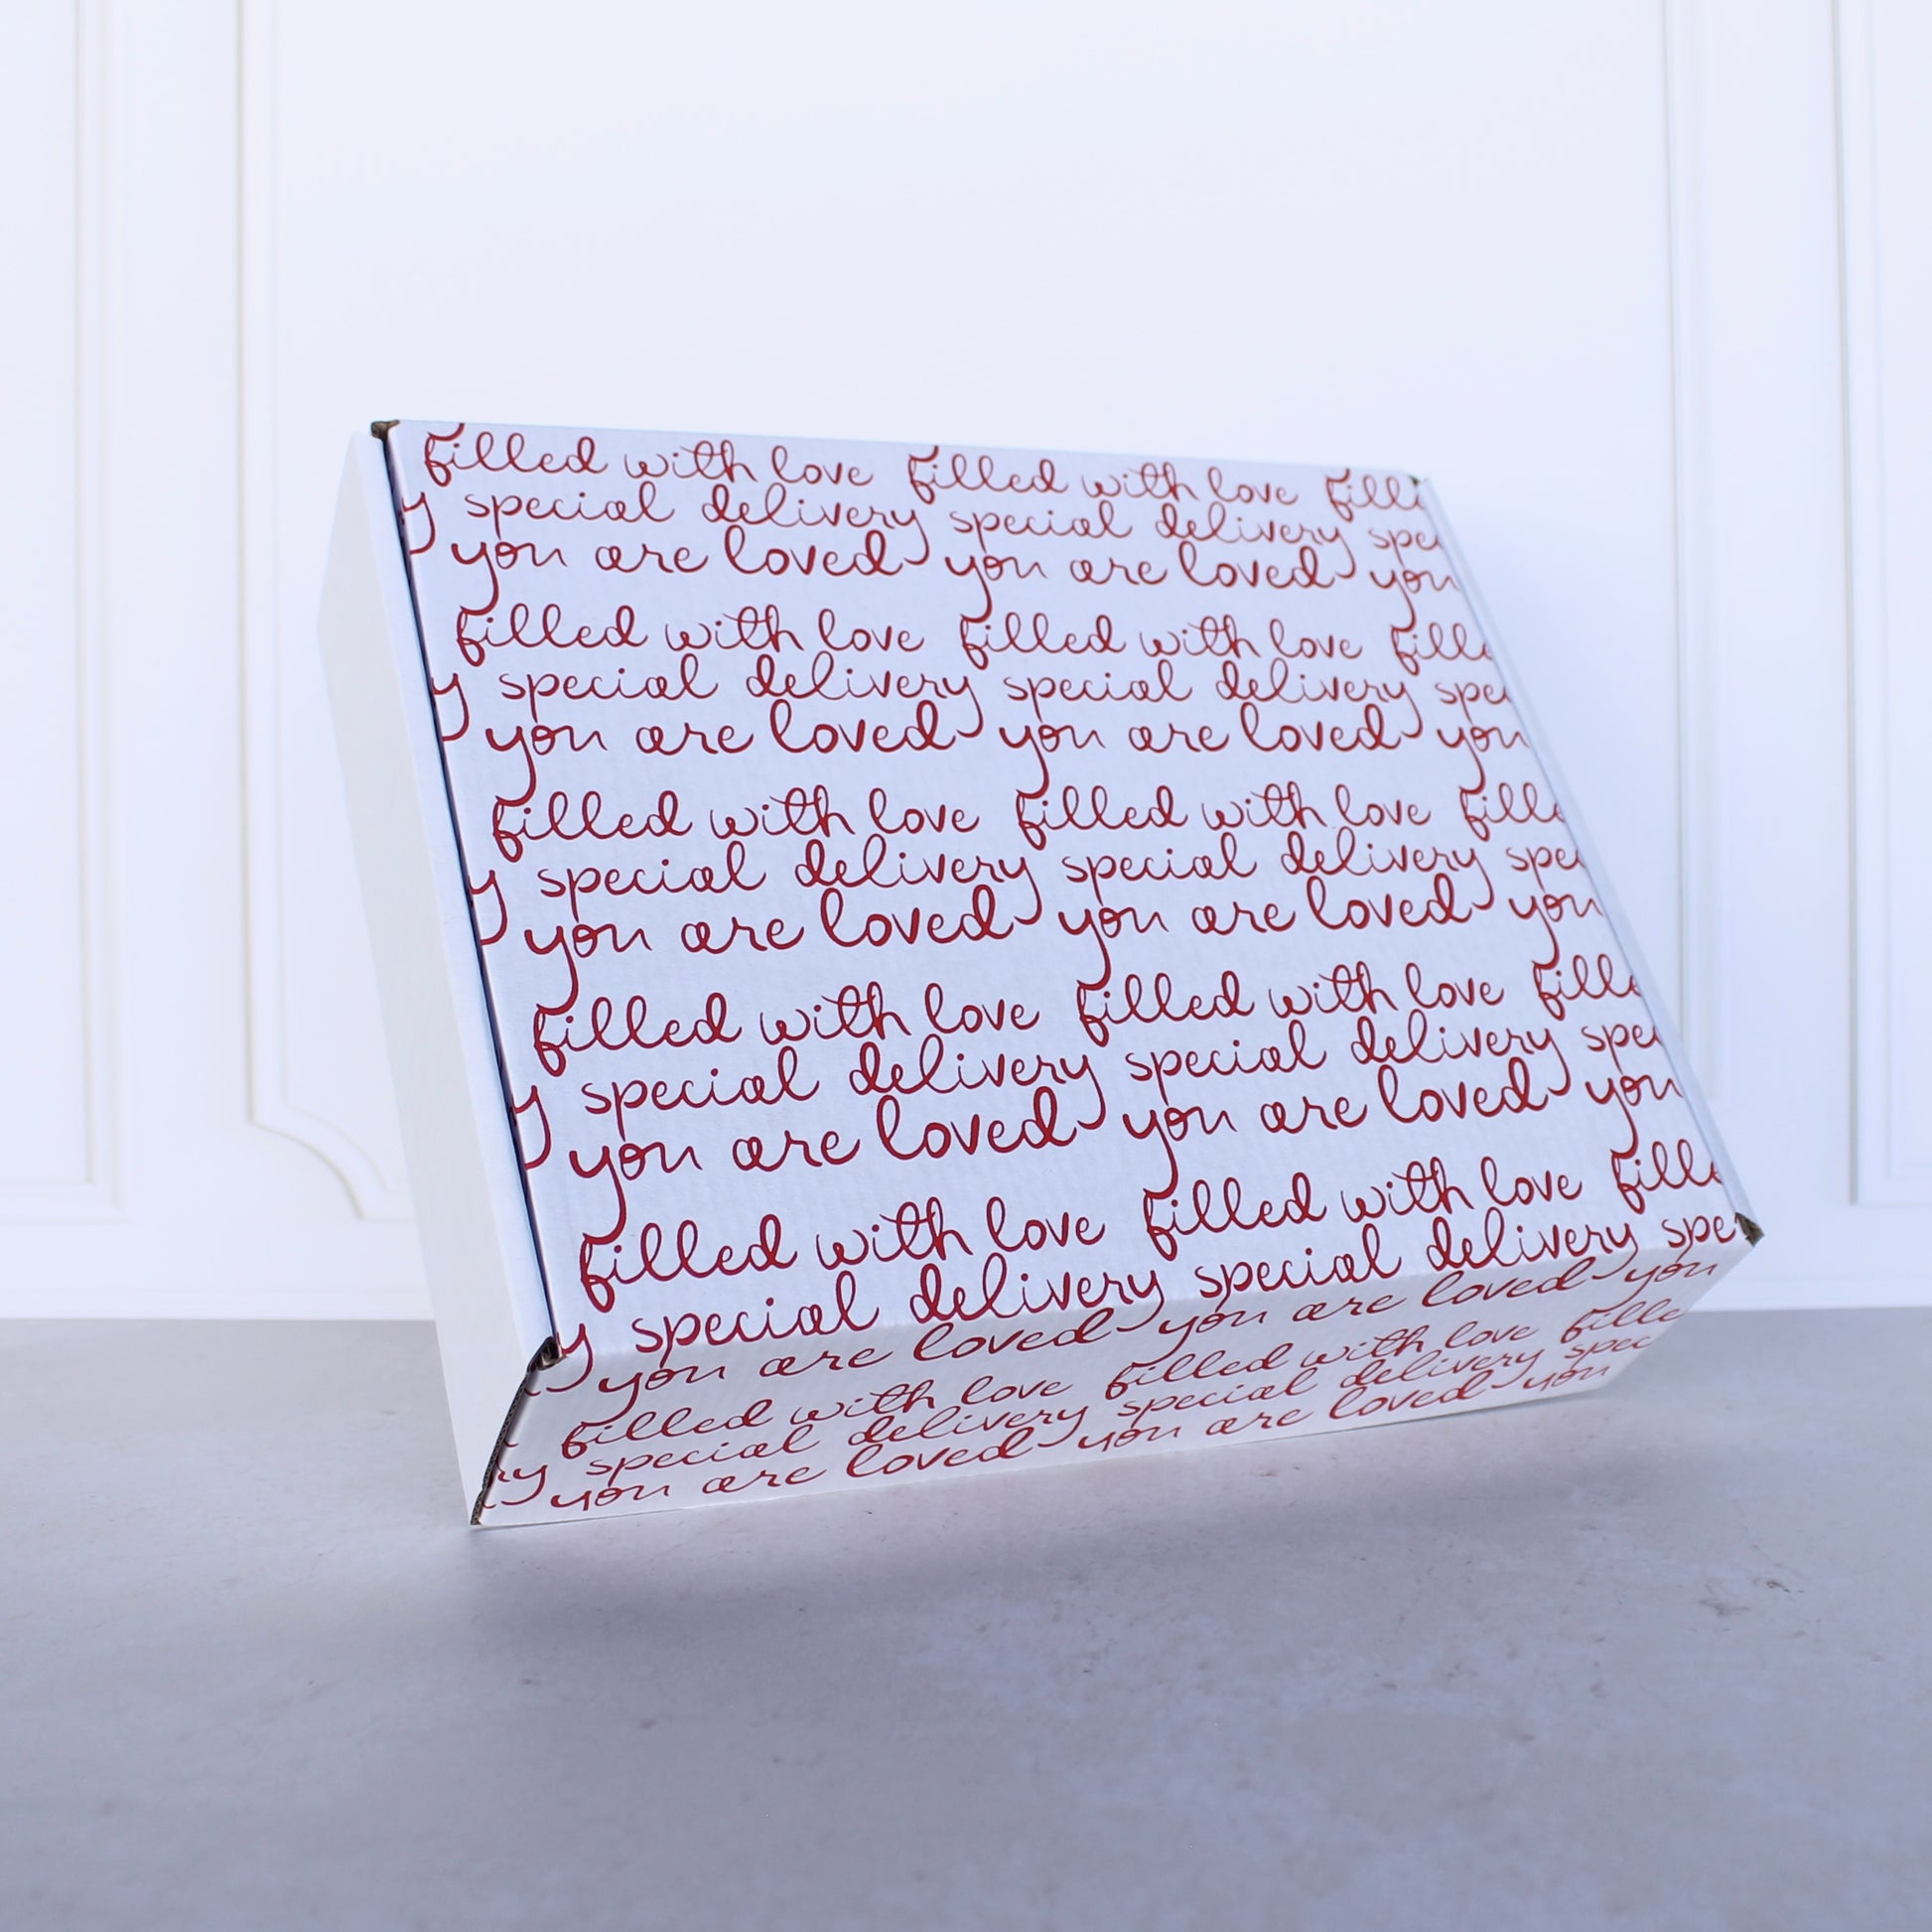 filled with love filled with love fill
y special delivery special delivery spe
you are loved you are loved you
filled with love filled with love fill
y special delivery special delivery spe
you are loved you are loved you
filled with love filled with love fill
y special delivery special delivery spe
you are loved you are loved you
filled with love filled with love fill
y special delivery special delivery spe
you are loved you are loved you
filled with love filled with love fill
y special delivery special delivery spe
you are loved you are loved you
filled with love filled with love fille
ry special delivery special delivery spec
you are loved you are loved you